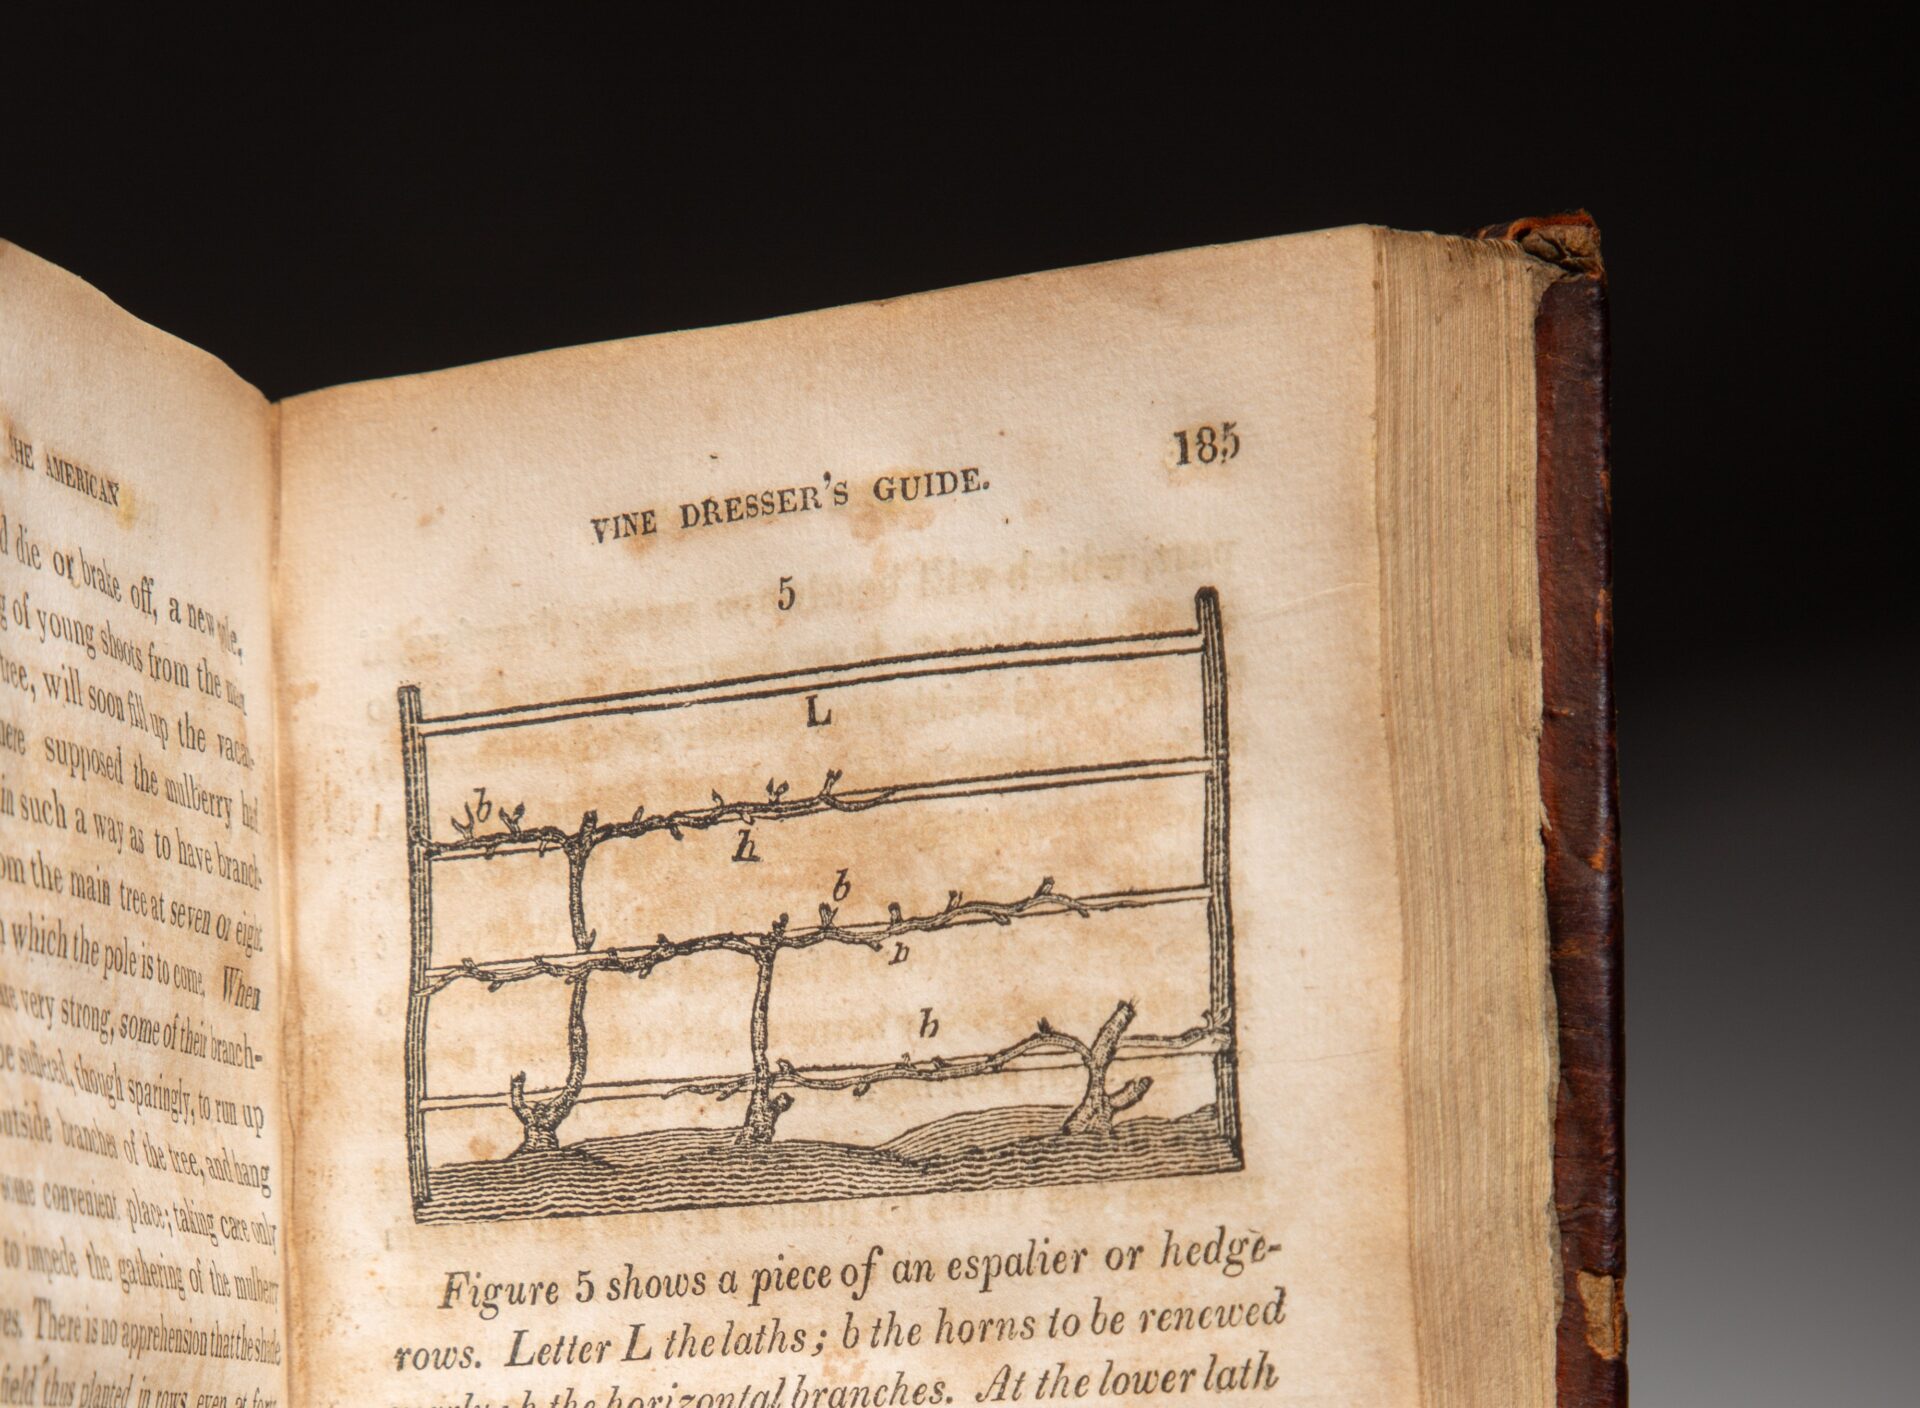 THE AMERICAN
d die or brake off, a new
g of young shoots from the
tree, will soon fill up the
here supposed the mulberry had
in such a way as to have branch-
om the main tree at seven or eight
which the pole is to come. When
are very strong, some of their branch-
be suffered, though sparingly, to run up
outside branches of the tree, and hang
some convenient place; taking care only
to impede the gathering of the mulberry
There is no apprehension that the shade
field thus planted in rows, even at
185
VINE DRESSER'S GUIDE.
5
L
b
h
b
b
h
Figure 5 shows a piece of an espalier or hedge-
rows. Letter L the laths; b the horns to be renewed
h the horizontal branches. At the lower lath